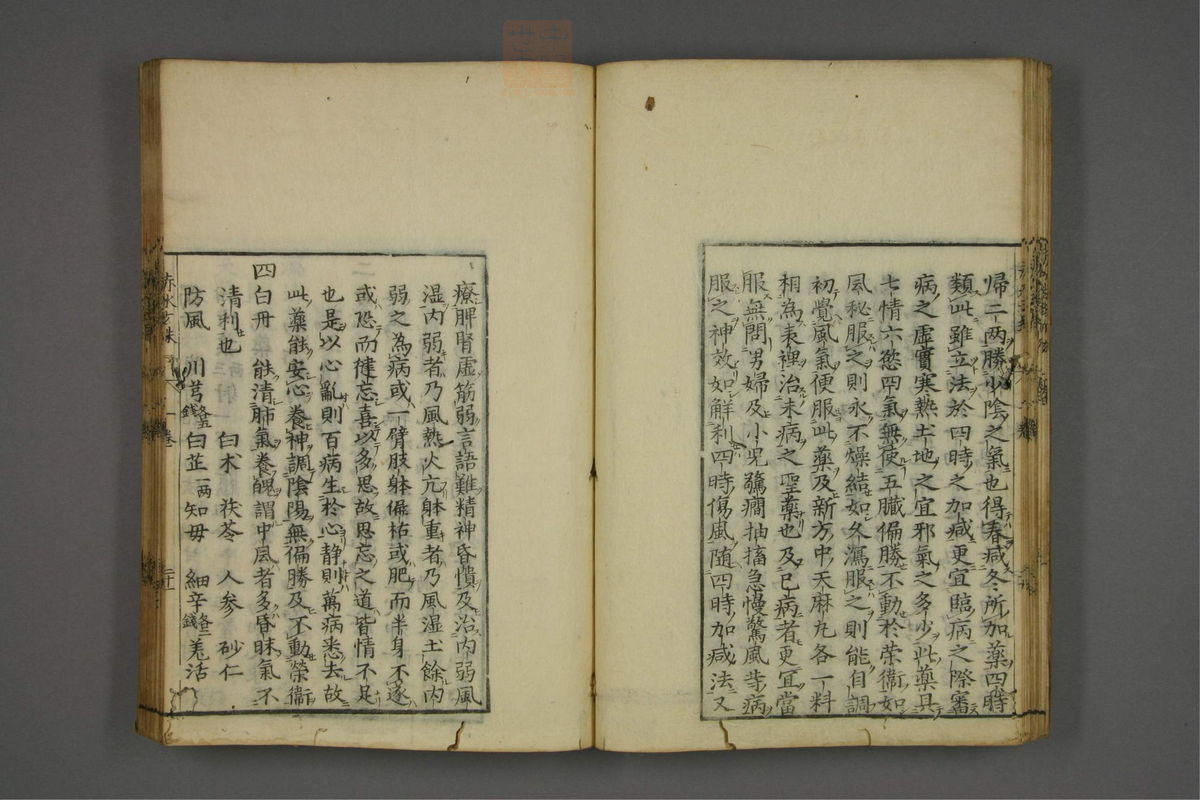 帰二两勝少陰之氣也得春减冬所加藥四時
類此雖立法於四時之加减更宜臨病之際審
病之虚實寒熱土地之宜邪氣之多少此藥具
七情六慾四氣無使五臓偏勝不動於荣衛如
風秘服之則永不燥結如久瀉服之則能自調
初覺風氣便服此藥及新方中天麻丸各一料
相為表裡治未病之聖藥也及已病者更宜當
服無問男婦及小児驚癇抽搐急慢驚風等病
服之神效如解利四時傷風随四時加减法又
療脾腎虚筋弱言語難精神昏憒及治内弱風
湿内弱者乃風熱火亢躰重者乃風湿土餘内
弱之為病或一臂肢躰偏枯或肥而半身不遂
或恐而健忘喜以多思故思忘之道皆情不足
也是以心亂則百病生於心静則萬病悉去故
此藥能安心養神調陰陽無偏勝及不動榮衛
四白丹 能清肺氣養魄謂中風者多昏昧氣不
清利也 白术 茯苓 人参 砂仁
防風 川芎各五錢 白芷一两 知母 細辛各二錢 羌活
赤水玄珠 一卷